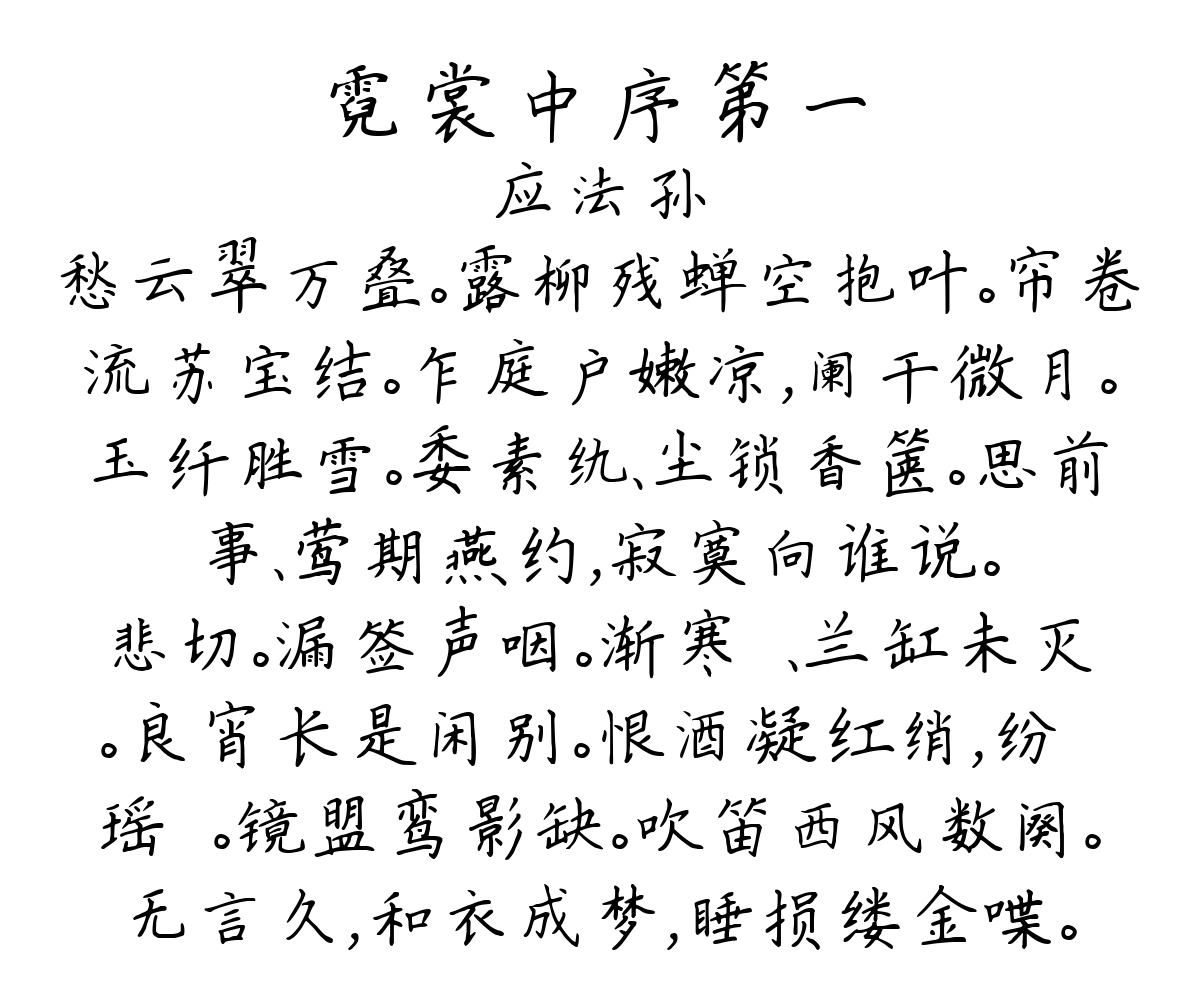 霓裳中序第一
应法孙
愁云翠万叠。露柳残蝉空抱叶。帘卷
流苏宝结。乍庭户嫩凉,阑干微月。
玉纤胜雪。委素纨、尘锁香箧。思前
事、莺期燕约,寂寞向谁说。
悲切。漏签声咽。渐寒 、兰缸未灭
。良宵长是闲别。恨酒凝红绡,纷
瑶 。镜盟鸾影缺。吹笛西风数阕。
无言久,和衣成梦,睡损缕金喋。